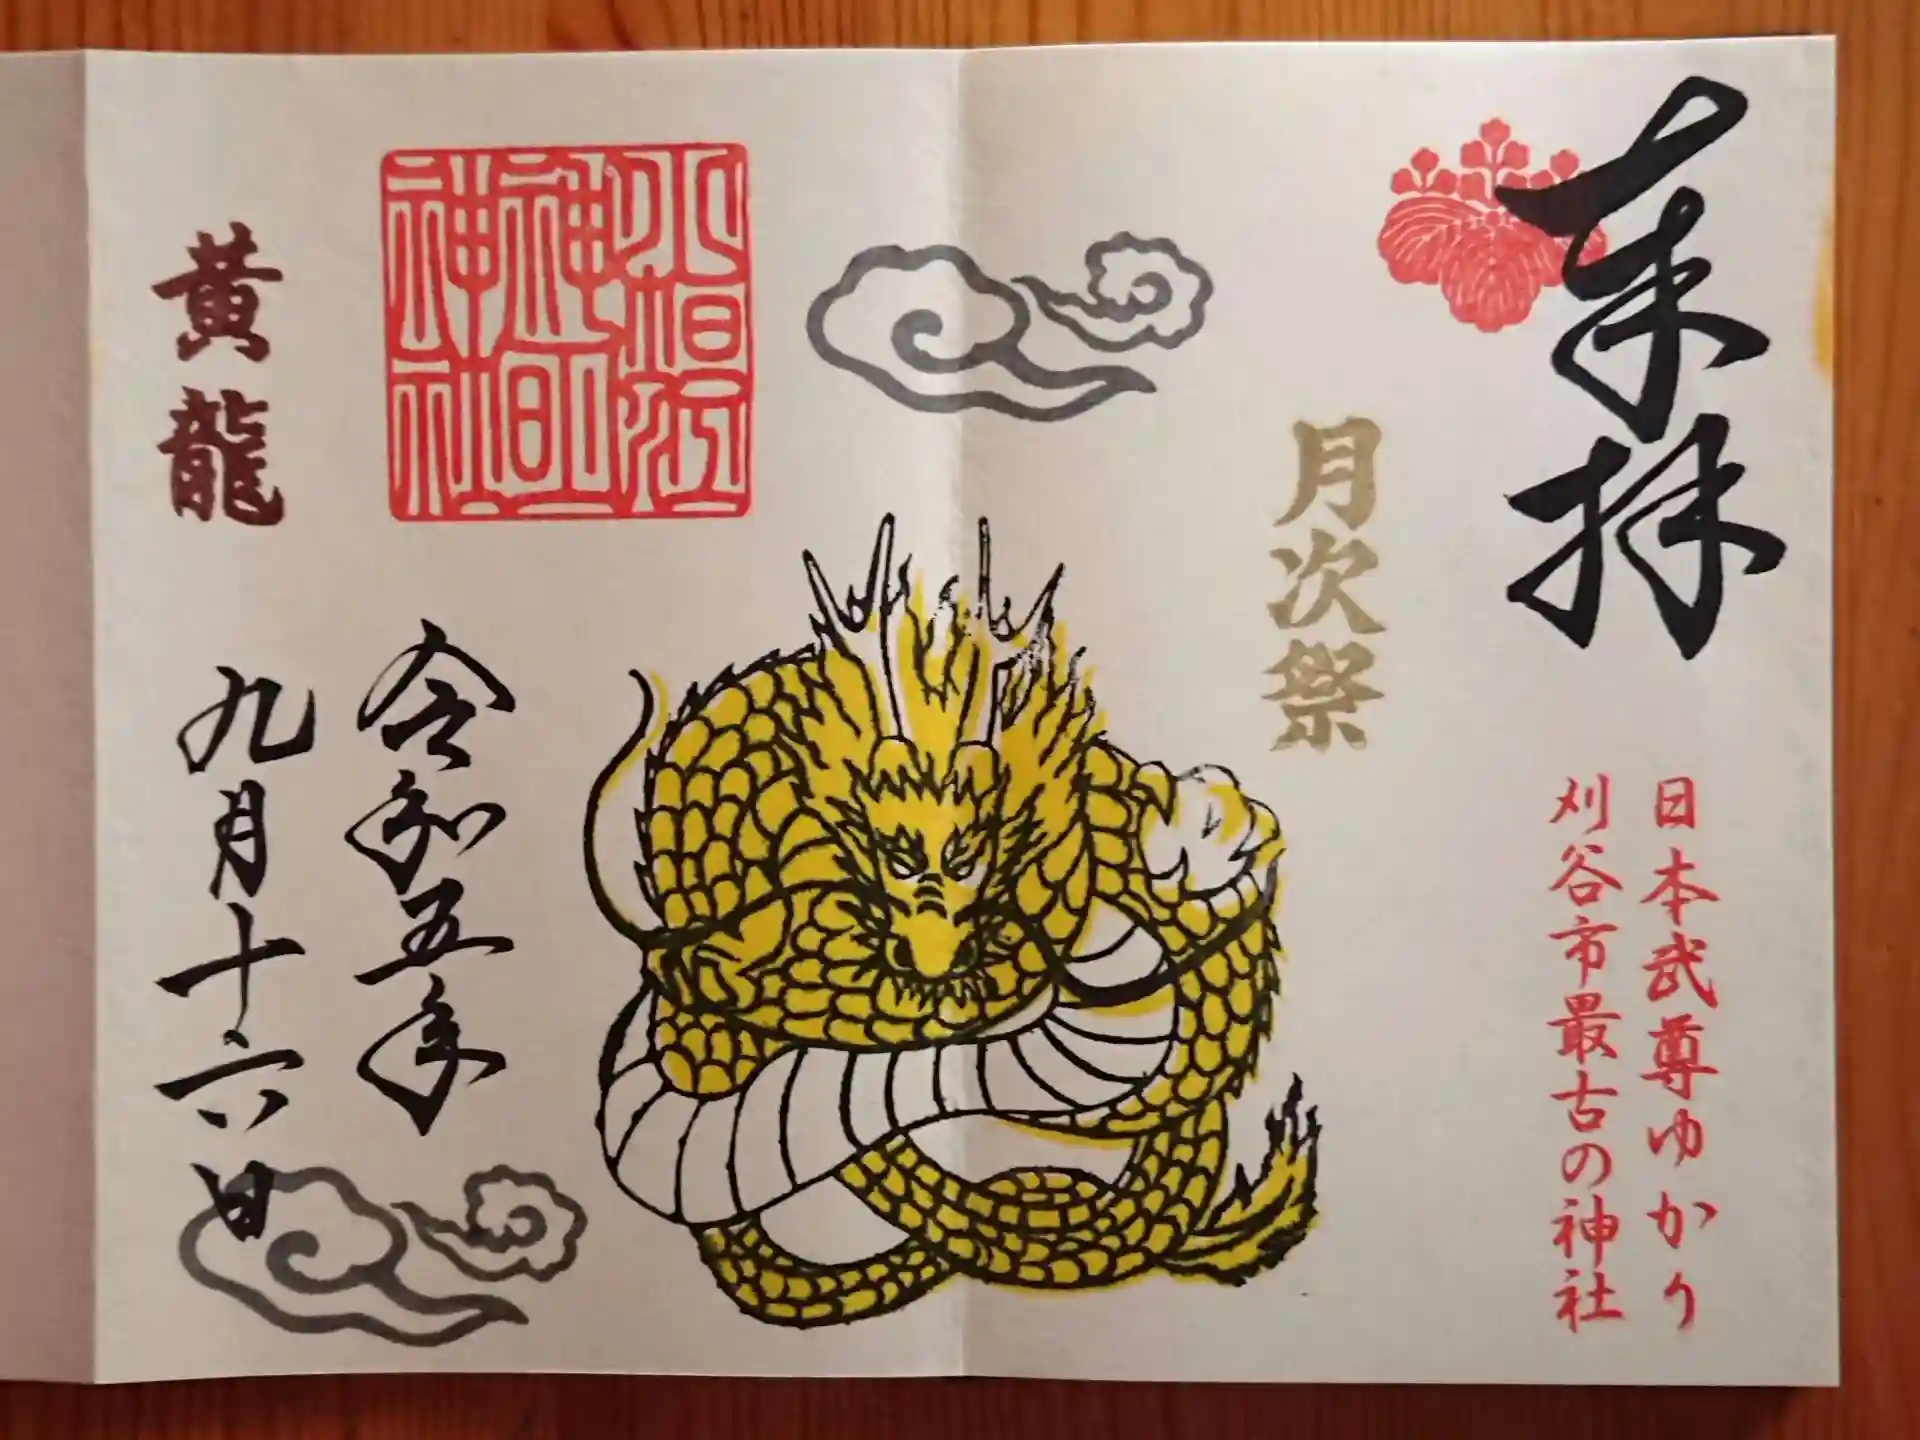 奉拝
日本武尊ゆかり
刈谷市最古の神社
月次祭
小垣江
神明
神社
令和五年
九月十六日
黄龍